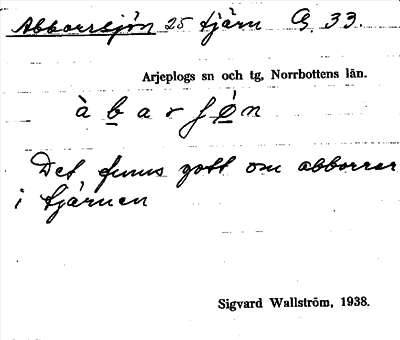 Abborrsjön 25 tjärn G. 33.
Arjeplogs sn och tg, Norrbottens län.
à b̲ a r ʃ ǿ̲ n
Det finns gott om abborrar
i tjärnen
Sigvard Wallström, 1938.